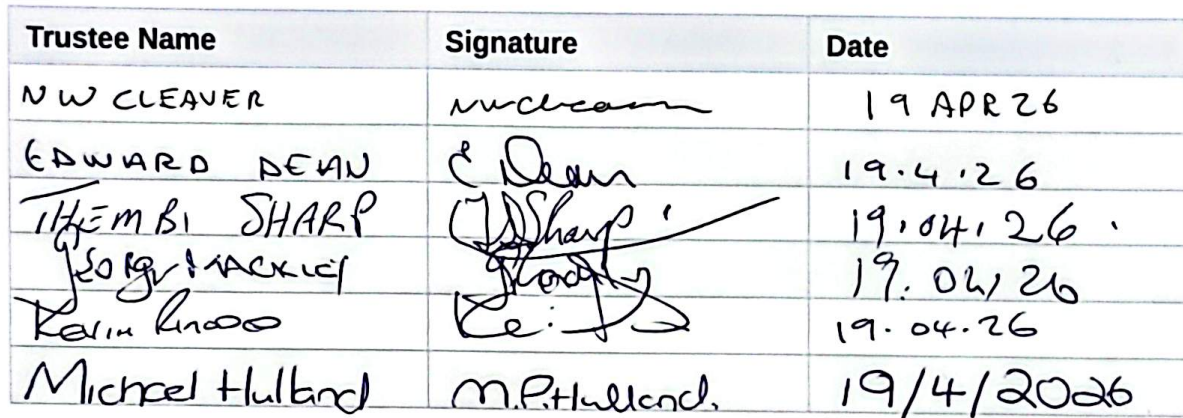 Trustee Name Signature Date
NW CLEAVER nwcleaver 19 APR 26
EDWARD DEAN E Dean 19.4.26
THEMBI SHARP Sharp 19.04.26.
19.04/26
Kevin 19.04.26
Michael Hulland M.P.Hulland. 19/4/2026